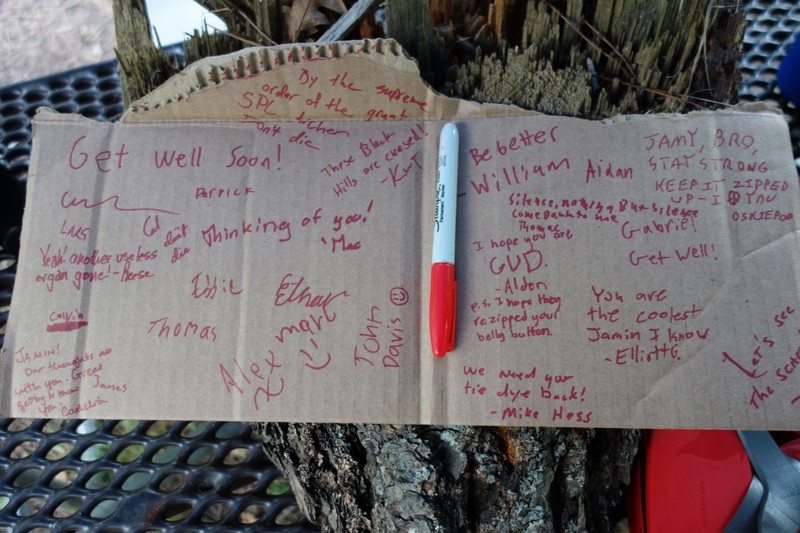 By the supreme
order of the great
SPL
Dont die
These Black
Hills are cursed!!
-KurT
Get Well Soon!
PATRICK
LARS
Cal don't
die
Thinking of you!
'Mac
Yeah! another useless
organ gone! -Reese
Eddie
Ethan
Calvin
Thomas
Alex mark
John
Davis
JAMIN!
Our thoughts are
with you. Great
getting to know James
Sharpie
Be better
-William
Aidan
JAMY, BRO,
STAY STRONG
KEEP IT ZIPPED
UP-I YOU
OSKIEPOO
Silence, nothing But silence
Come back to me
Thomas
Gabriel
I hope you are
GUD.
-Alden
p.s. I hope they
rezipped your
belly button.
Get Well!
You are
the coolest
Jamin I know
-Elliott G.
We need your
tie dye back!
-Mike Hess
Let's see
The scar